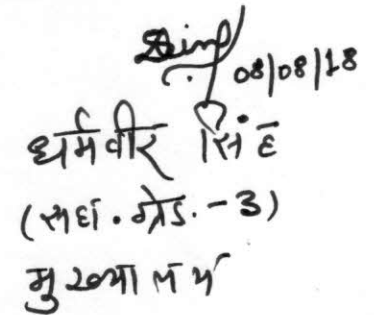 08/08/18
धर्मवीर सिंह
(सहा. ग्रेड. - 3)
मुख्यालय